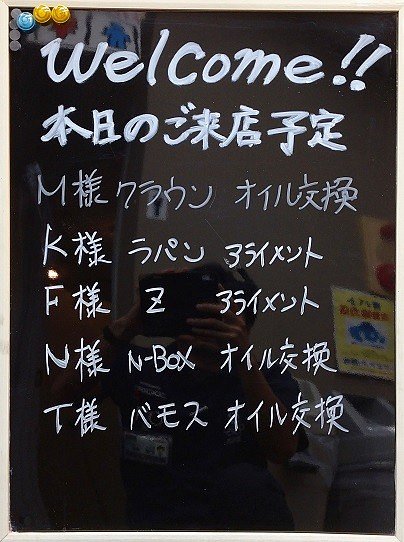 Welcome!!
本日のご来店予定
M様 クラウン オイル交換
K様 ラパン アライメント
F様 Z アライメント
N様 N-BOX オイル交換
T様 バモス オイル交換